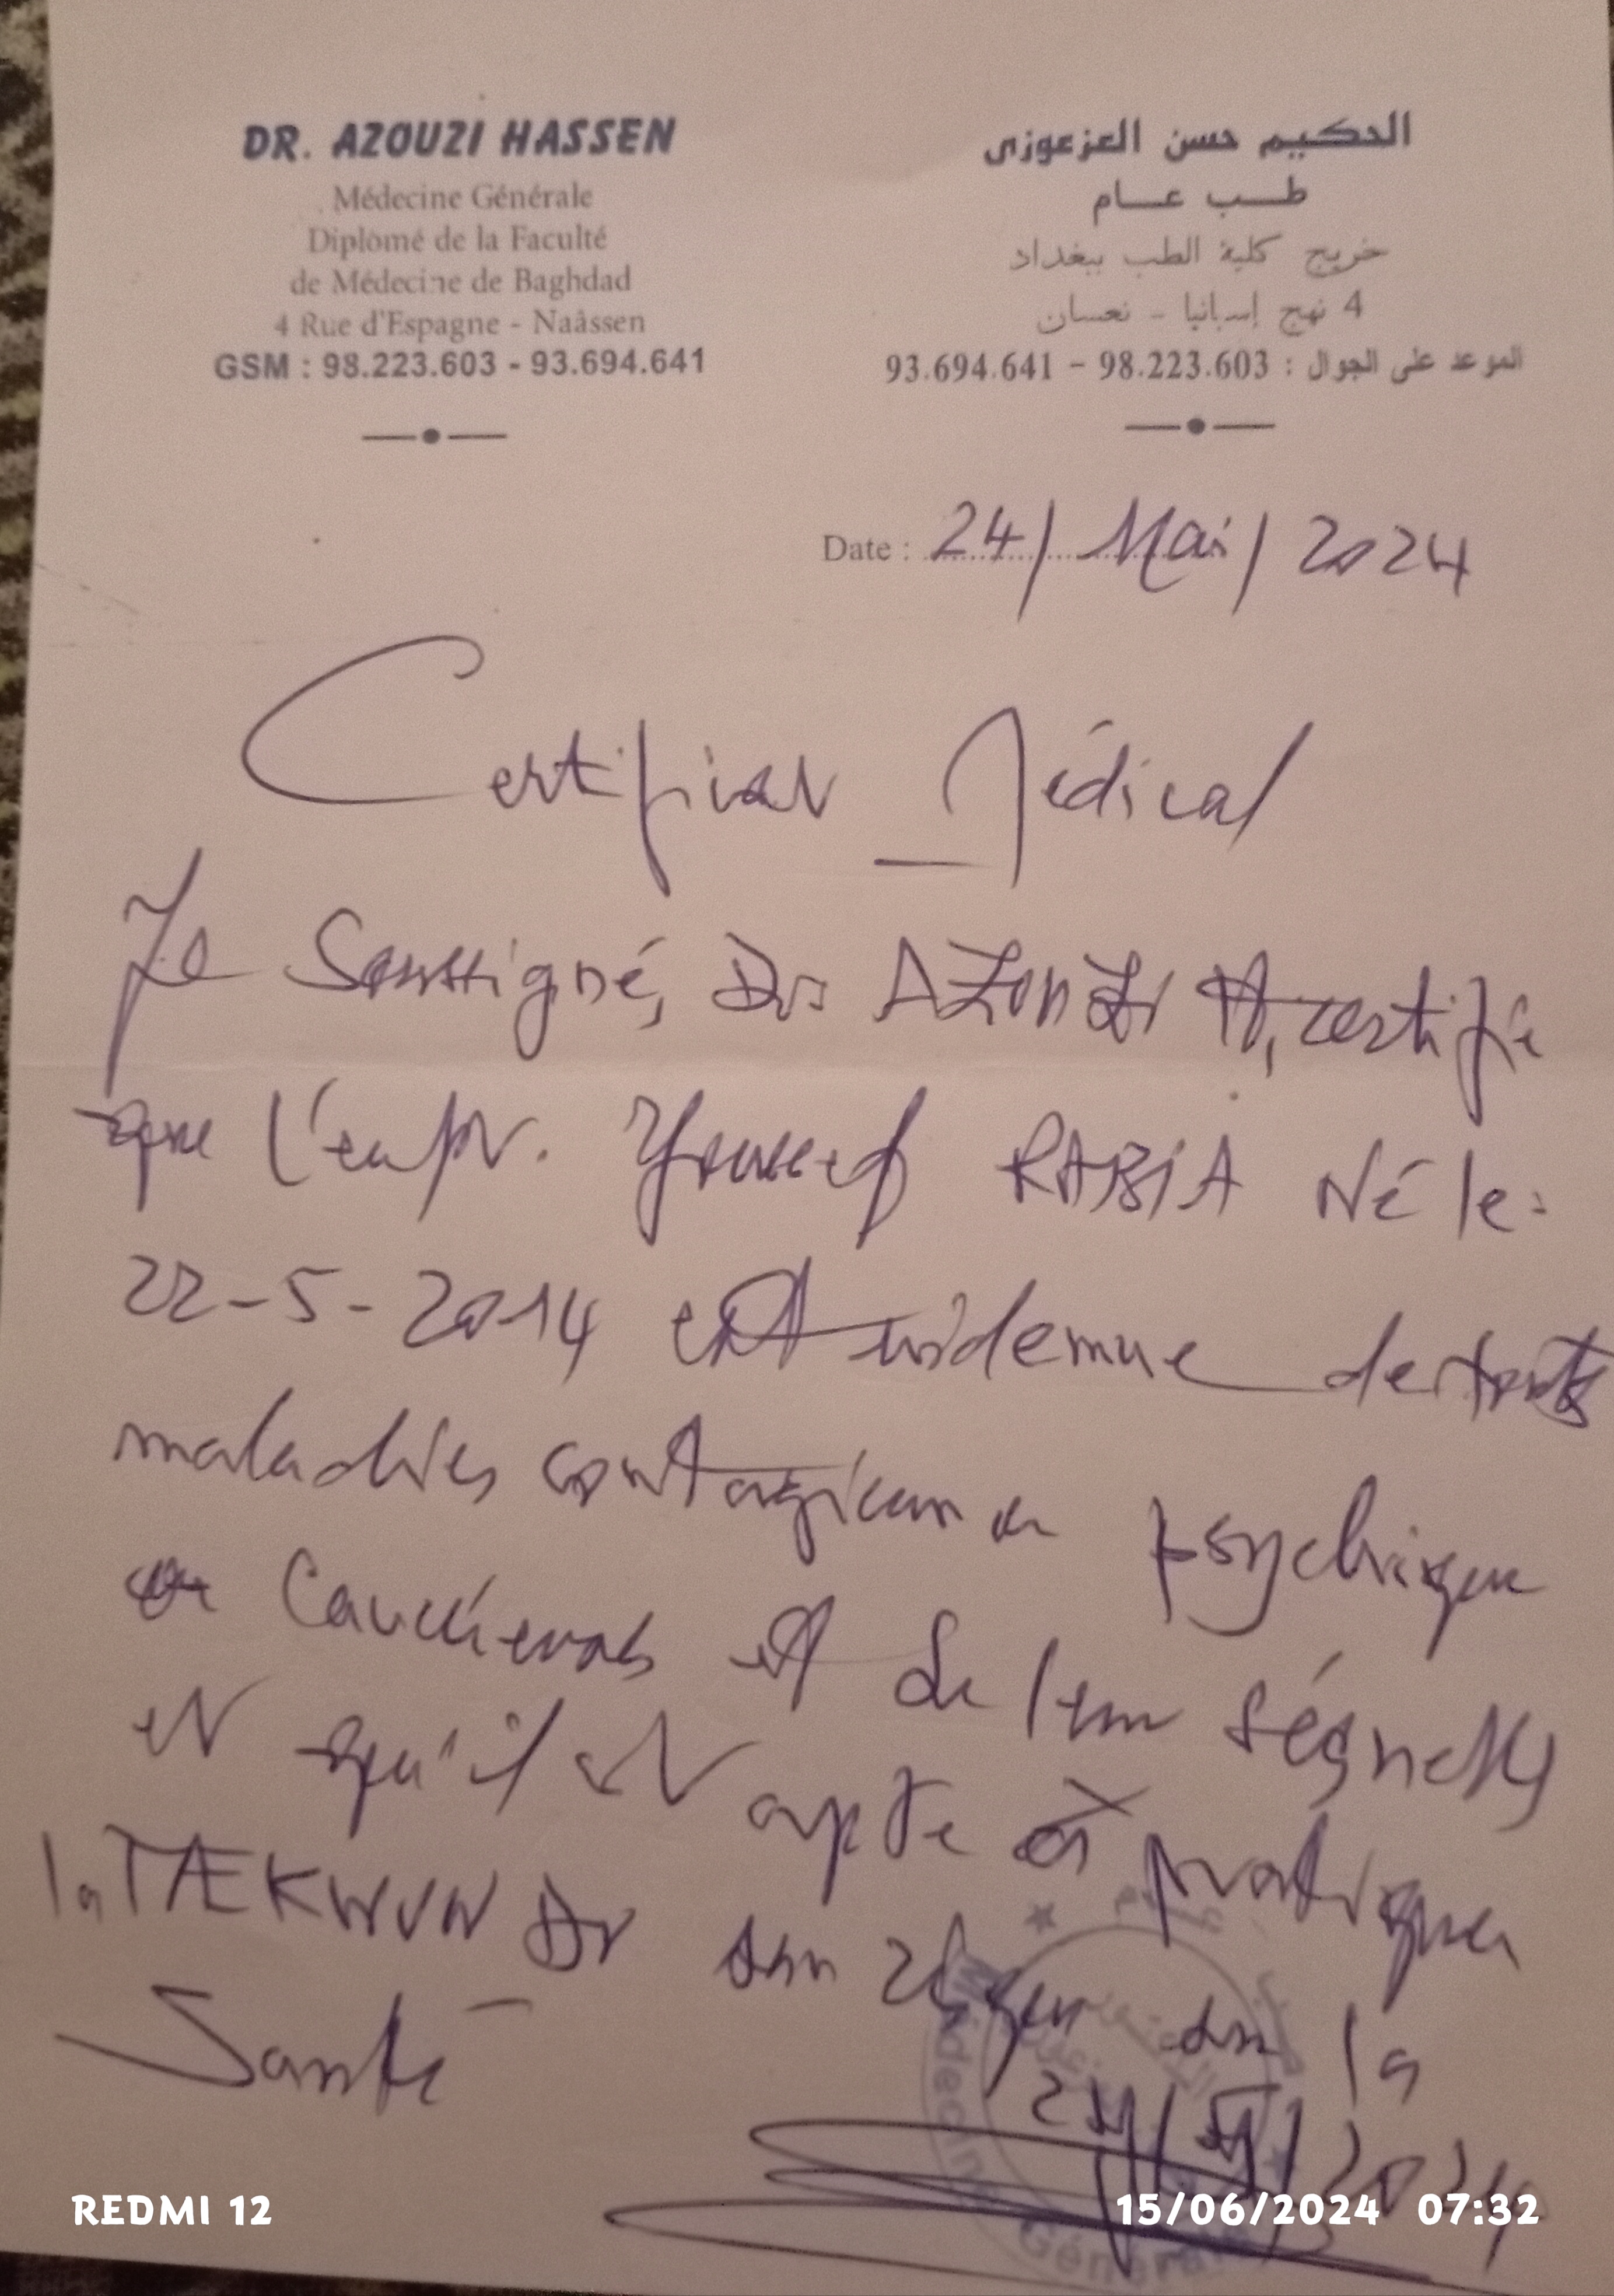 DR. AZOUZI HASSEN
Médecine Générale
Diplômé de la Faculté
de Médecine de Baghdad
4 Rue d'Espagne - Naâssen
GSM : 98.223.603 - 93.694.641
الحكيم حسن العزعوزي
طب عام
خريج كلية الطب ببغداد
4 نهج إسبانيا - نعسان
الموعد على الجوال : 98.223.603 - 93.694.641
Date : 24/ Mai / 2024
Certificat Médical
Je Soussigné, Dr AZOUZI H, certifie
que l'enft. Youssef RABIA Né le:
22-5-2014 est indemne de toutes
maladies contagieuse psychique
ou et de leur
et qu'il est apte à pratiquer
la TAEKWUN DO
Santé
24/5/2024
Médecine Générale
REDMI 12
15/06/2024 07:32